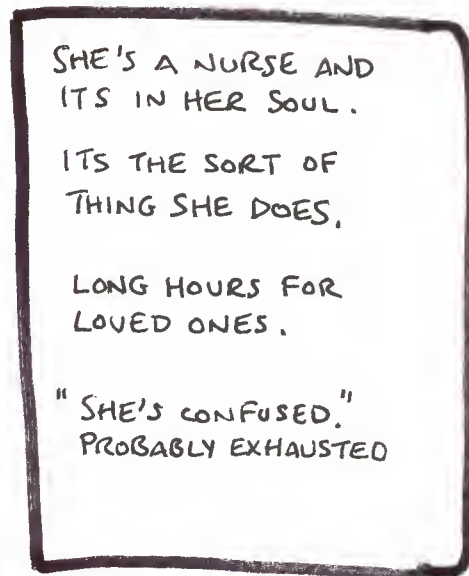 SHE'S A NURSE AND
ITS IN HER SOUL.
ITS THE SORT OF
THING SHE DOES.
LONG HOURS FOR
LOVED ONES.
"SHE'S CONFUSED."
PROBABLY EXHAUSTED